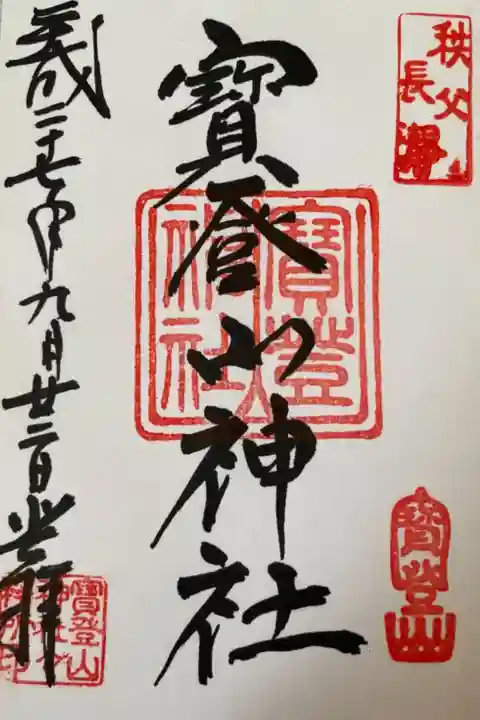 秩父
長瀞
寶登山
寶登山神社
寶登山
神社
平成二十七年九月廿二日 拝
寶登山
神社